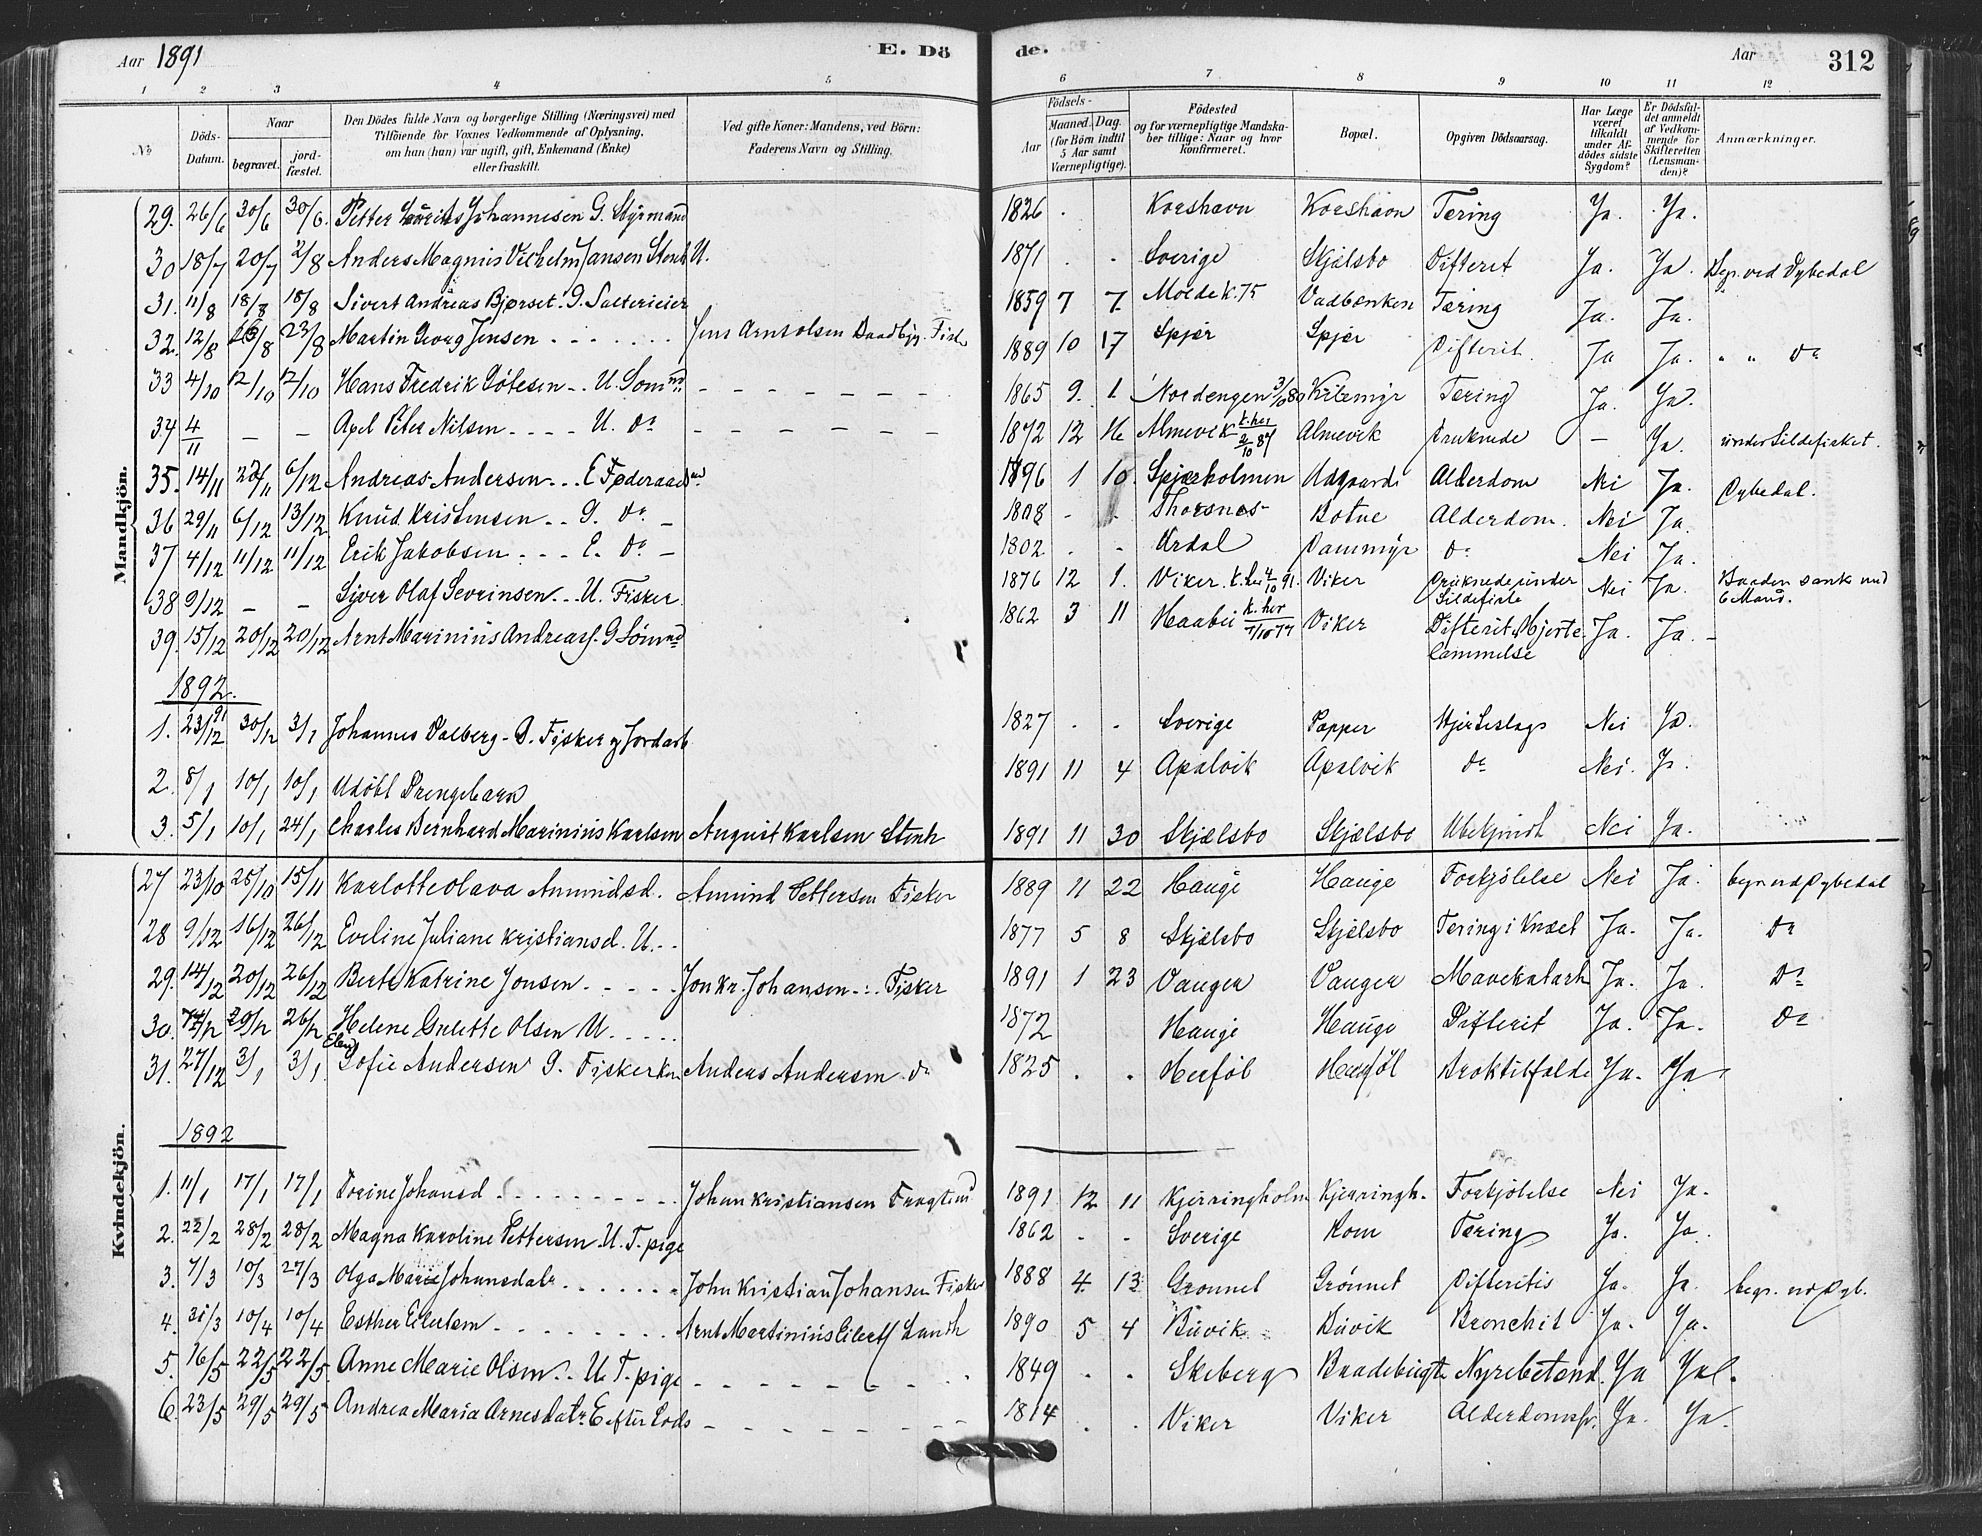 Aar 1891 E. Dö de. Aar 312
1 2 3 4 5 6 7 8 9 10 11 12
No Döds-Datum. Naar begravet. jord-fæstet. Den Dödes fulde Navn og borgerlige Stilling (Næringsvei) med Tilföiende for Voxnes Vedkommende af Oplysning, om han (hun) var ugift, gift, Enkemand (Enke) eller fraskilt. Ved gifte Koner: Mandens, ved Börn: Faderens Navn og Stilling. Födsels- Aar Maaned. Dag. (for Börn indtil 5 Aar samt Værnepligtige). Födested og for værnepligtige Mandskaber tillige: Naar og hvor konfirmeret. Bopæl. Opgiven Dödsaarsag. Har Læge været tilkaldt under Afdödes sidste Sygdom? Er Dödsfaldet anmeldt af Vedkommende for Skifteretten (Lensmanden)? Anmærkninger.
Mandkjön.
29. 26/6 30/6 30/6. Petter Johannesen G. Styrmand 1826 . Korshavn Korshavn Tæring Ja. Ja.
30 18/7 20/7 2/8 Anders Magnus Vilhelm Jansen Stenh U. 1871 . . Sverige Skjælsbo Difterit Ja. Ja. Begr. ved Dybedal
31. 11/8 18/8 18/8 Sivert Andreas Bjørset. G. Salterieier 1859 7 7. Molde k. 75 Vadbænken Tæring Ja. Ja.
32. 12/8 23/8 23/8 Martin Georg Jensen Jens Arnt Olsen Baadbyg. Fisk 1889 10 17 Spjær Spjær Difterit. Ja Ja. " " do
33 4/10 12/10 12/10 Hans Fredrik Götesen U. Sømd 1865 9. 1 Nordengen 3/10 80 Kilemyr Tæring Ja. Ja.
34 4/11 – – Axel Peter Nilsen U. do 1872 12 Almevik k. her 2/10 87 Almevik Druknede – Ja. under Sildefisket.
35. 14/11 22/11 6/12 Andreas Andersen E Føderaadmd 1896 1 10. Spjærholmen Udgaard Alderdom Nei Ja. Dybedal.
36 29/11 6/12 13/12 Knud Kristensen G. do 1808 - - Thorsnes Botne Alderdom. Nei Ja
37 4/12 11/12 11/12 Erik Jakobsen E. do 1802 . . Urdal Dammyr do Nei Ja.
38 9/12 – – Syver Olaf Severinsen U. Fisker. 1876 12 1. Viker. k. her 4/10 91. Viker Druknede under Sildefiske Nei Ja. Baaden sank med 6 Mand.
39. 15/12 20/12 20/12 Arnt Marinius Andreas. G Sömnd 1862 3 11 Haabu k. her 1/10 77 Viker Difterit, Hjerte lammelse Ja. Ja. –
1892.
1. 23/12 91 30/12 3/1 Johannes Dalberg - G. Fisker og Jordarb 1827 . . Sverige Papper Hjerteslag Nei Ja.
2. 8/1 10/1 10/1 Udöbt Drengebarn 1891 11 4 Apalvik Apalvik do Nei. Ja.
3. 5/1 10/1 24/1 Charles Bernhard Marinius Karlsen August Karlsen Stenh 1891 11 30 Skjælsbo Skjælsbo Ubekjendt Nei Ja.
Kvindekjön.
27 23/10 25/10 15/11 Karlotte Olava Amundsd. Amund Pettersen Fisker 1889 11 22 Hauge Hauge Forkjölelse Nei Ja. begr. ved Dybedal
28 9/12 16/12 26/12 Eveline Juliane Kristiansd. U. 1877 5 8 Skjælsbo Skjælsbo Tæring i Knæet Ja. Ja. do
29. 14/12 20/12 26/12 Berte Katrine Jonsen Jon Kr. Johansen Fisker 1891 1 23 Vauger Vauger Mavekatarh Ja. Ja. do
30. 14/12 20/12 26/12 Helene Gulette Olsen U. 1872 Hauge Hauge Difterit Ja. Ja. do
31. 27/12 3/1 3/1. Sofie Andersen G. Fiskerkone Anders Andersen do 1825 . . Herföl Herföl Broktilfælde Ja. Ja
1892
1. 11/1 17/1 17/1 Dorine Johansd Johan Kristiansen Fragtmd 1891 12 11 Kjerringholm Kjerringh. Forkjölelse Nei Ja.
2. 22/2 28/2 28/2 Magna Karoline Pettersen. U. T. pige 1862 . . Sverige Rom Tæring Ja. Ja.
3. 7/3 10/3 27/3 Olga Marie Johansdatr John Kristian Johansen Fisker 1888 4. 13 Grønnet Grønnet Difteritis Ja. Ja. begr. ved Dyb.
4. 31/3 10/4 10/4 Esther Eilertsen Arnt Martinius Eilerts Landh 1890 5 4 Buvik Buvik Bronchit Ja. Ja.
5. 16/5 22/5 22/5 Anne Marie Olsen. U. T. pige 1849 . . Skeberg Baadebugten Nyrebetænd. Ja Ja.
6. 23/5 29/5 29/5 Andrea Maria Arnesdatr E efter Lods 1814 . . Viker Viker Alderdomssv. Ja. Ja.